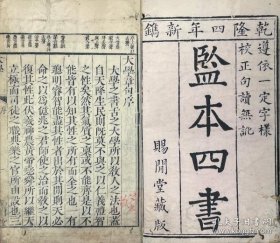 乾隆四年新鐫
遵依一定字樣
校正句讀無訛
監本四書
賜閒堂藏版
大學章句序
大學之書古之大學所以教人之法也蓋
自天降生民則既莫不與之以仁義禮智
之性矣然其氣質之稟或不能齊是以不
能皆有以知其性之所有而全之也一有
聰明睿智能盡其性者出於其閒則天必
命之以爲億兆之君師使之治而教之以
復其性此伏羲神農黃帝堯舜所以繼天
立極而司徒之職典樂之官所由設也三